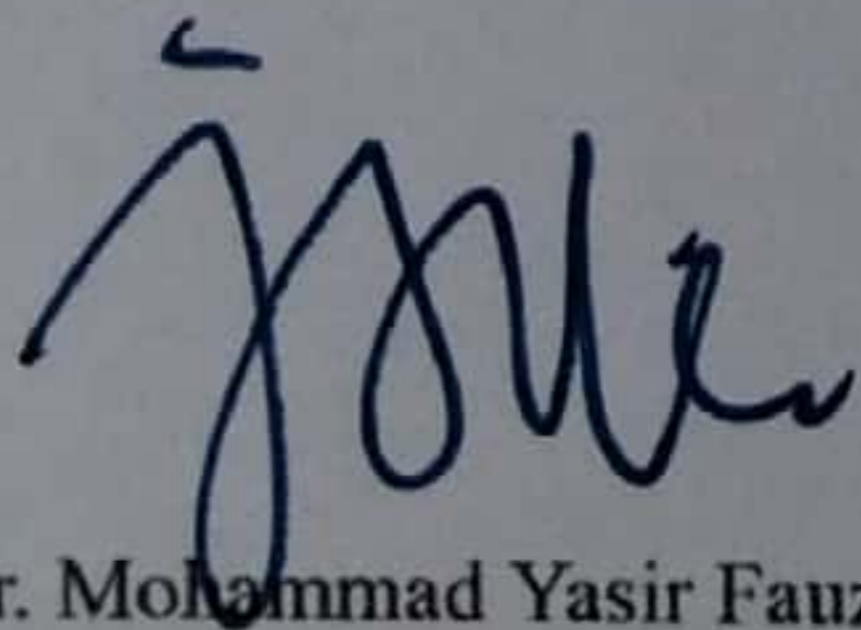 r. Mohammad Yasir Fauz